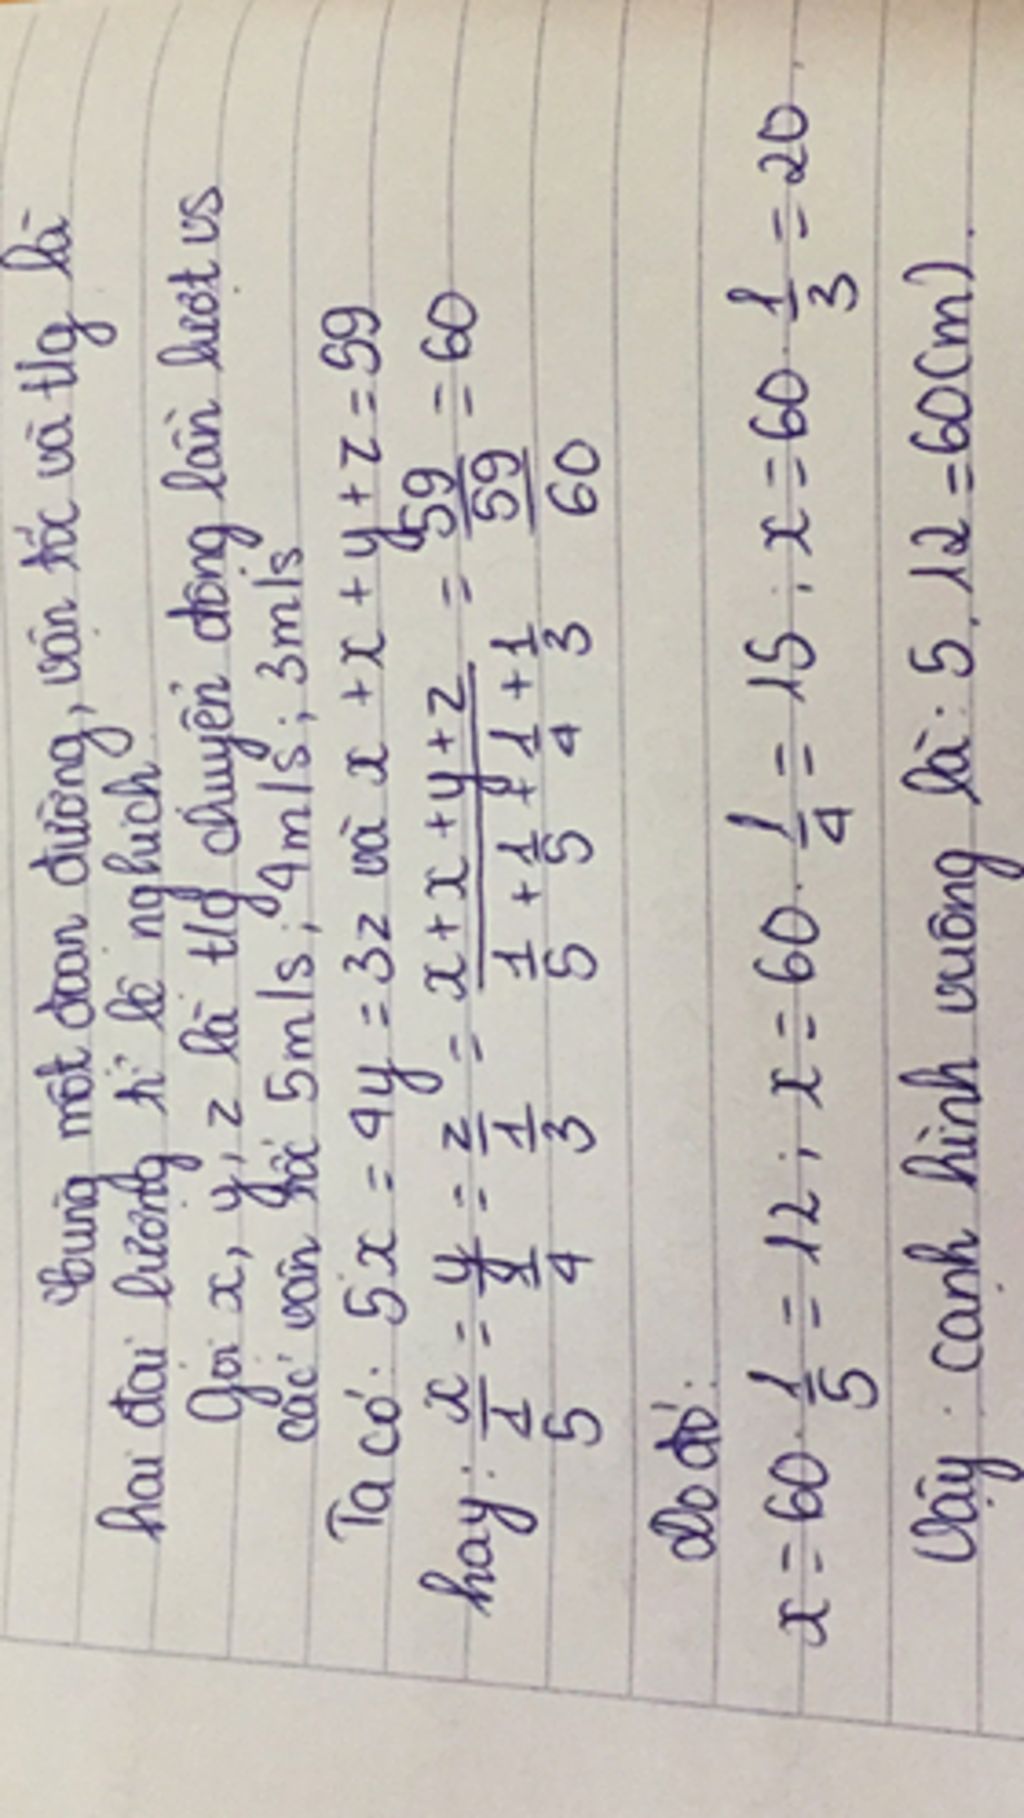 Cùng một đoạn đường, vận tốc và t/g là
hai đại lượng tỉ lệ nghịch
Gọi x, y, z là t/g chuyển động lần lượt vs
các vận tốc 5m/s; 4m/s; 3m/s
Ta có: 5x = 4y = 3z và x + x + y + z = 59
hay: x/(1/5) = y/(1/4) = z/(1/3) = (x + x + y + z)/(1/5 + 1/5 + 1/4 + 1/3) = 59/(59/60) = 60
do đó:
x = 60 . 1/5 = 12; x = 60 . 1/4 = 15; x = 60 . 1/3 = 20.
Vậy: cạnh hình vuông là: 5.12 = 60(m).